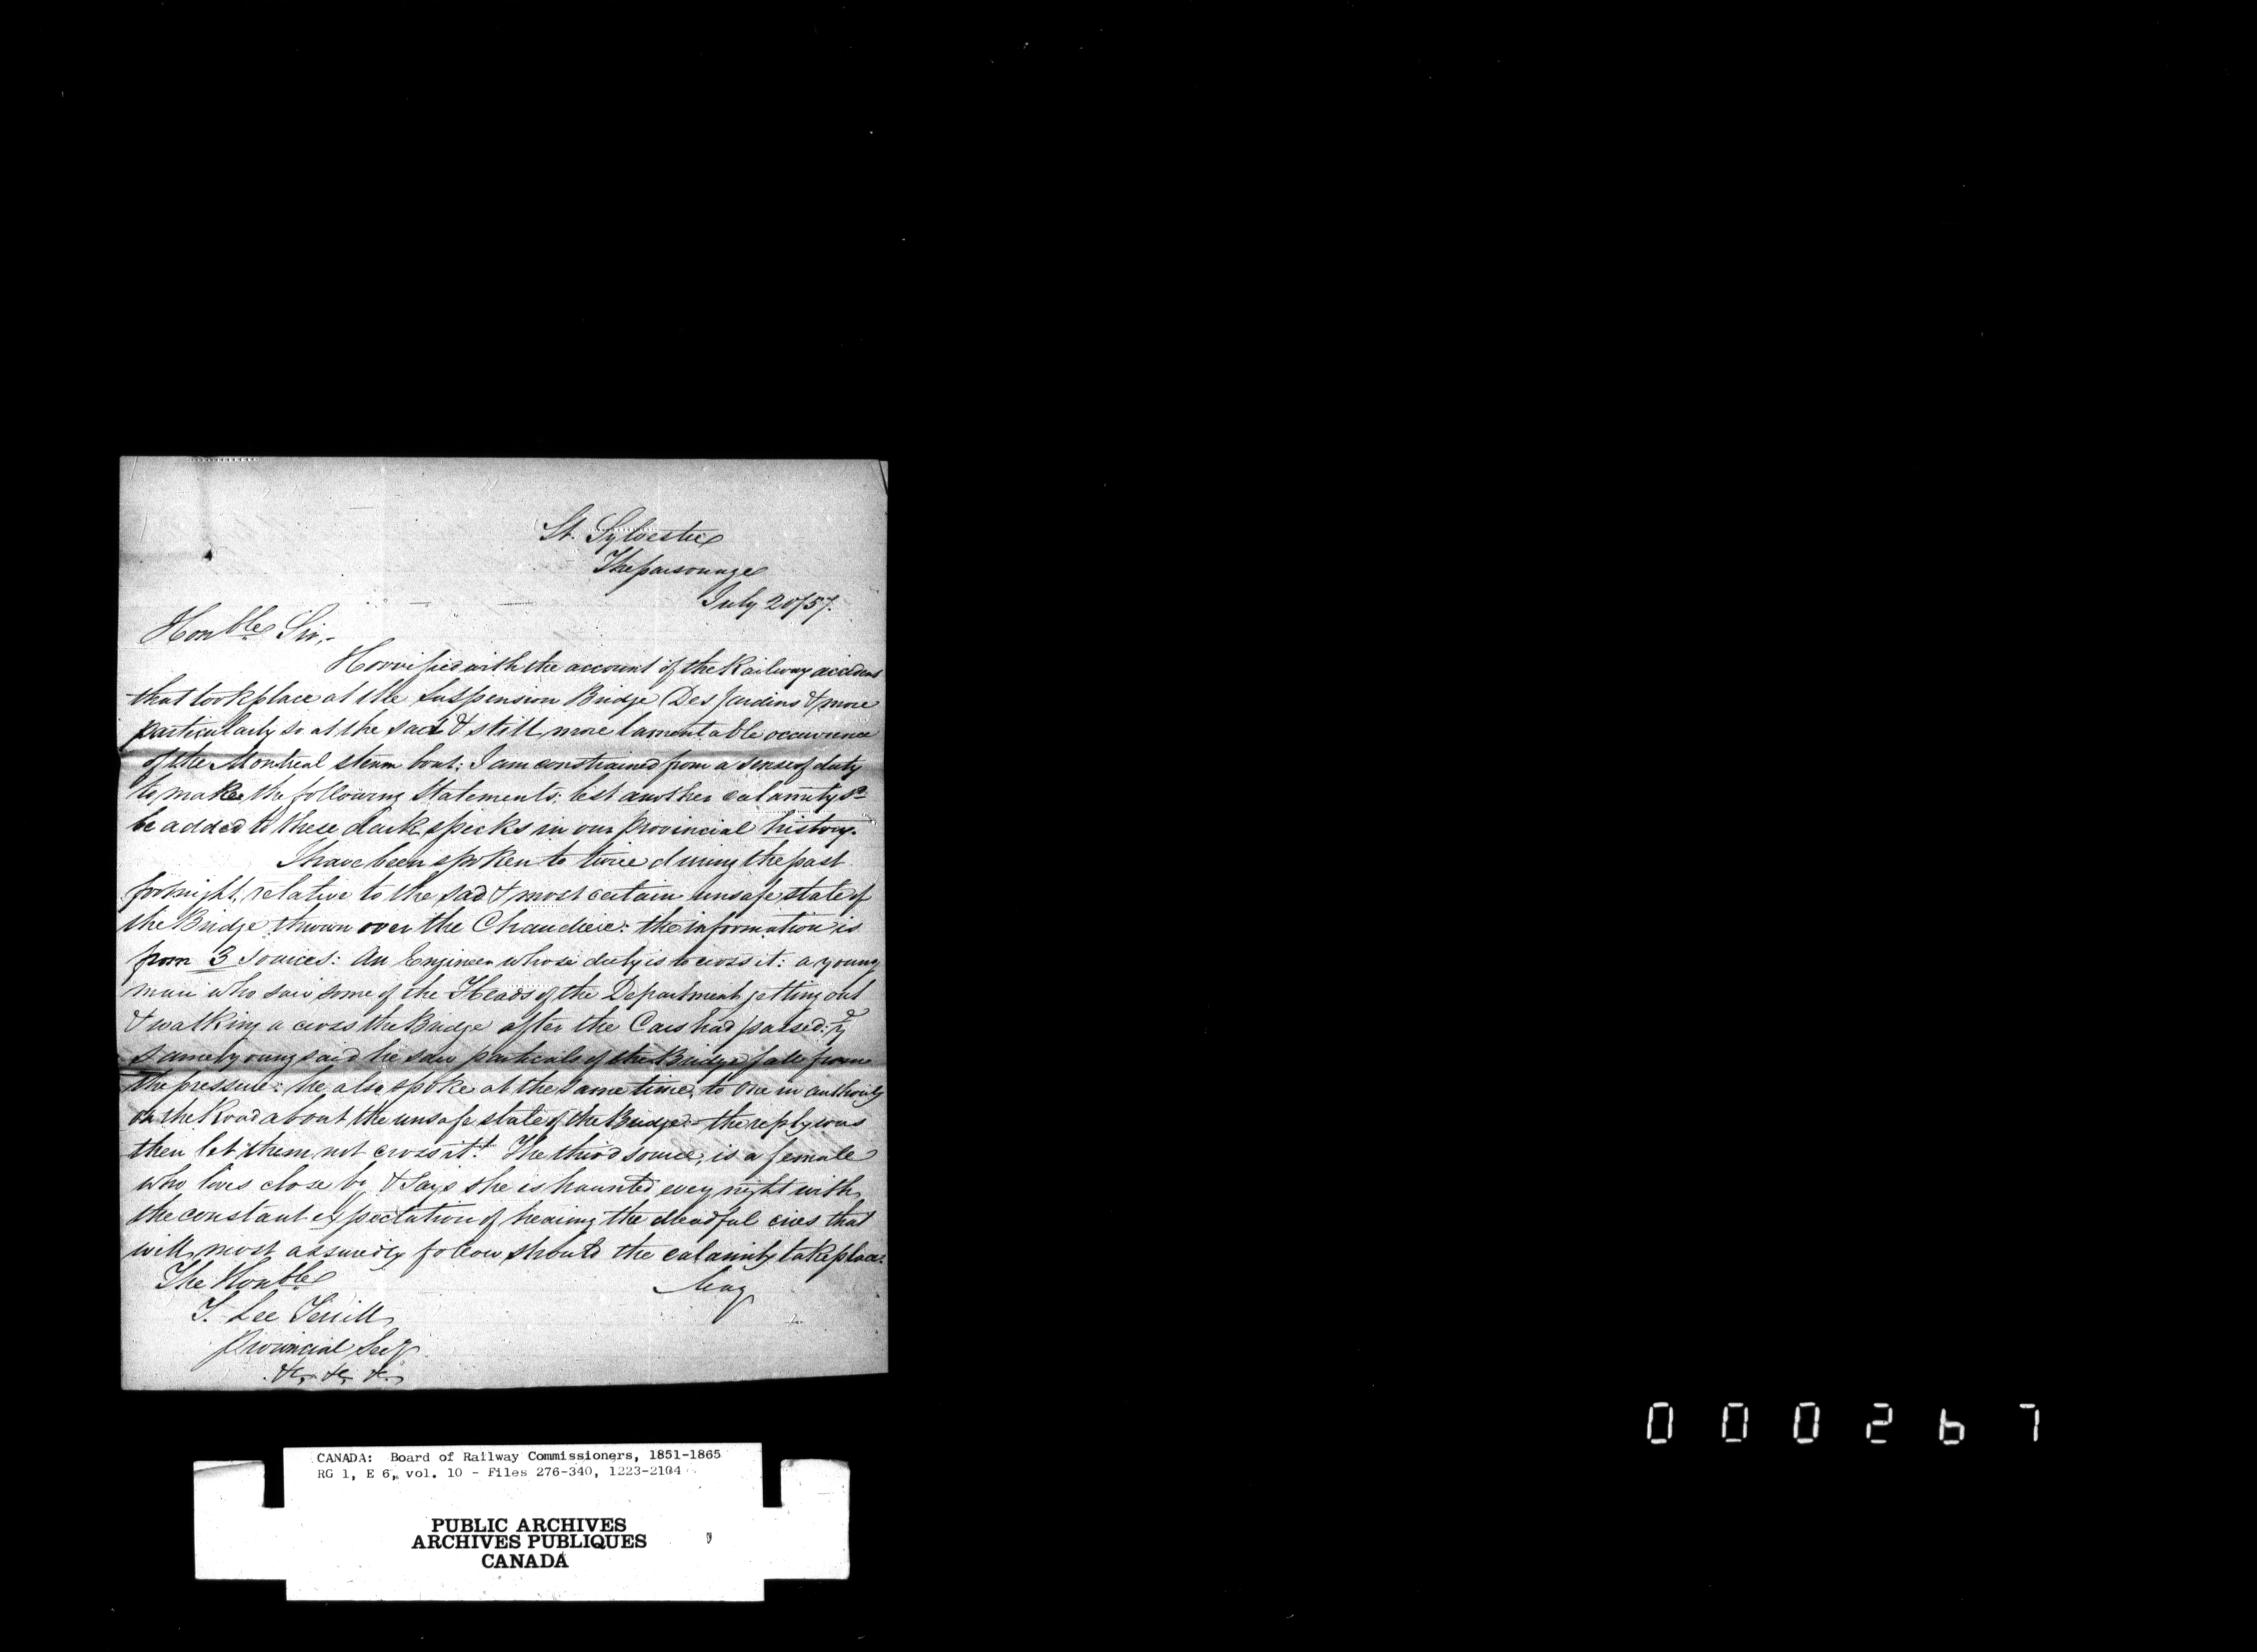 St. Sylvester
The parsonage
July 20/57.
Honble Sir,-
Horrified with the account of the Railway accident
that took place at the Suspension Bridge (Des Jardins & more
particularly so at the sad & still more lamentable occurrence
of the Montreal steam boat; I am constrained from a sense of duty
to make the following statements; lest another calamity sd
be added to these dark specks in our provincial history.
I have been spoken to twice during the past
fortnight, relative to the sad & most certain unsafe state of
the Bridge thrown over the Chaudiere: the information is
from 3 sources: An Engineer whose duty is to cross it: a young
man who saw some of the Heads of the Department getting out
& walking across the Bridge after the Cars had passed:
same young said he saw particals of the Bridge fall from
the pressure: he also spoke at the same time, to one in authority
on the Road about the unsafe state of the Bridge - the reply was
then let them not cross it! The third source, is a female
who lives close by & says she is haunted every night with
the constant expectation of hearing the dreadful cries that
will most assuredly follow should the calamity take place.
The Honble
May
T. Lee Terrill
Provincial Secy
&c, &c, &c,
CANADA: Board of Railway Commissioners, 1851-1865
RG 1, E 6, vol. 10 - Files 276-340, 1223-2104
PUBLIC ARCHIVES
ARCHIVES PUBLIQUES
CANADA
000267